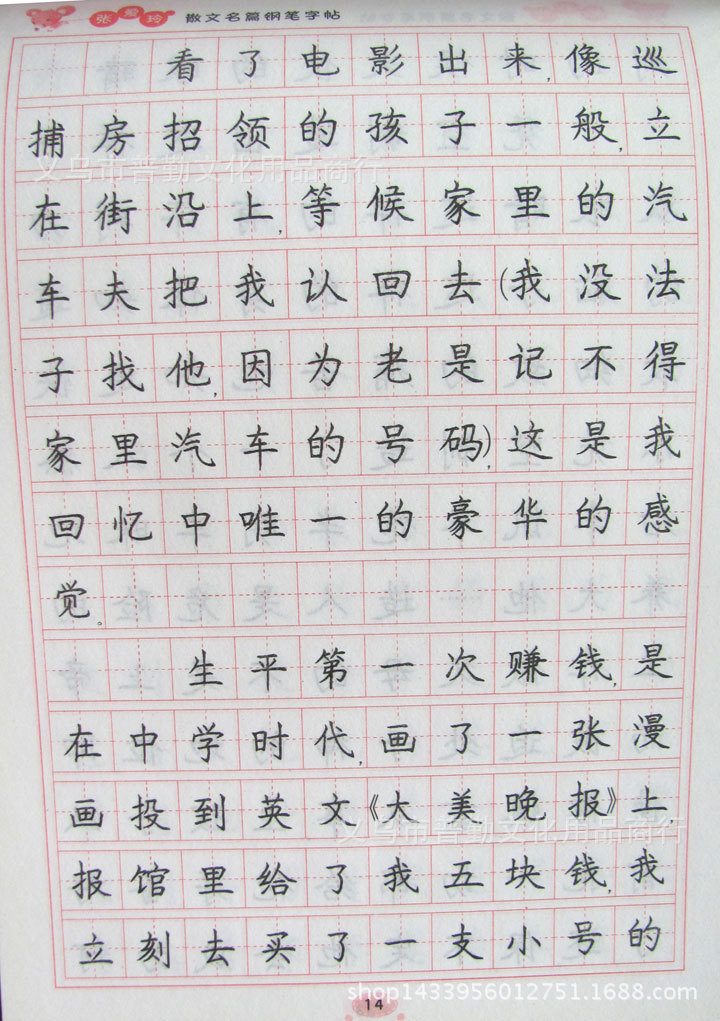 张爱玲 散文名篇钢笔字帖
看了电影出来,像巡
捕房招领的孩子一般,立
在街沿上,等候家里的汽
车夫把我认回去(我没法
子找他,因为老是记不得
家里汽车的号码),这是我
回忆中唯一的豪华的感
觉。
生平第一次赚钱,是
在中学时代,画了一张漫
画投到英文《大美晚报》上,
报馆里给了我五块钱,我
立刻去买了一支小号的
14
义乌市普勤文化用品商行
义乌市普勤文化用品商行
shop1433956012751.1688.com